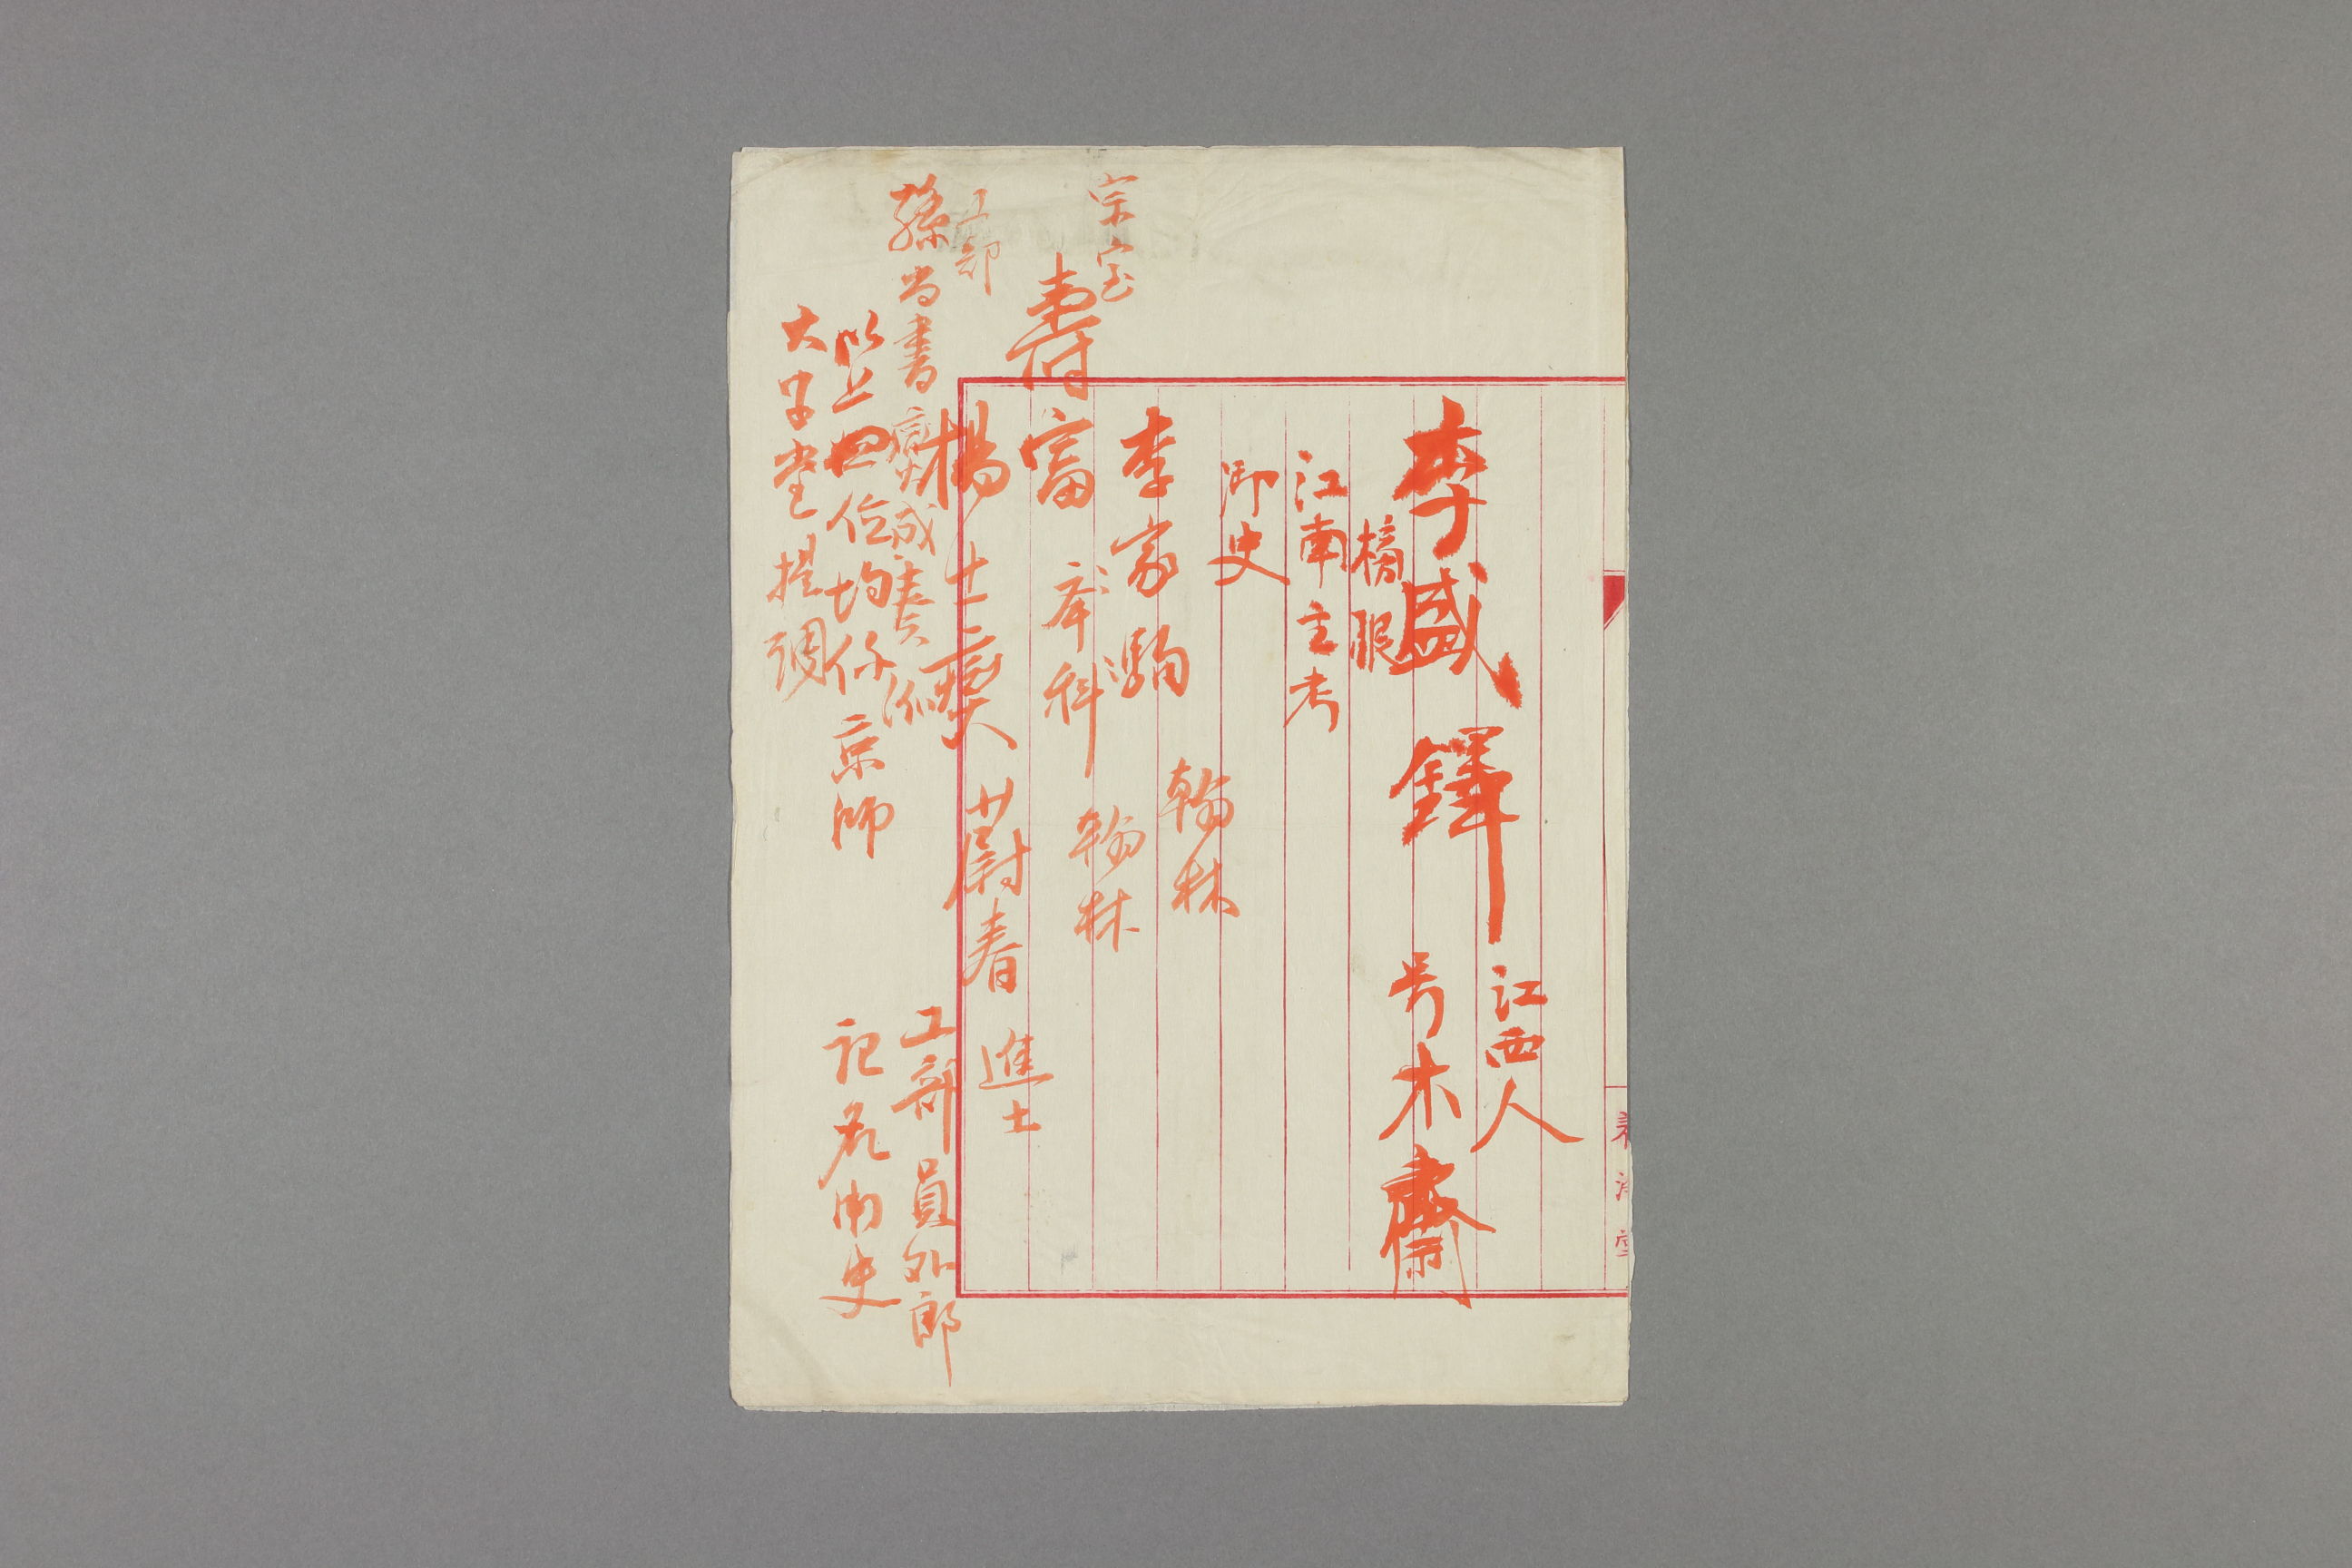 江西人
李盛鐸 号木齋
榜眼
江南主考
御史
李家駒 翰林
宗室
壽富 庶科 翰林
楊士燮 蔚春 進士
工部
孫尚書 奏派
工部員外郎
以上四位均係京師
大学堂提調
記名御史